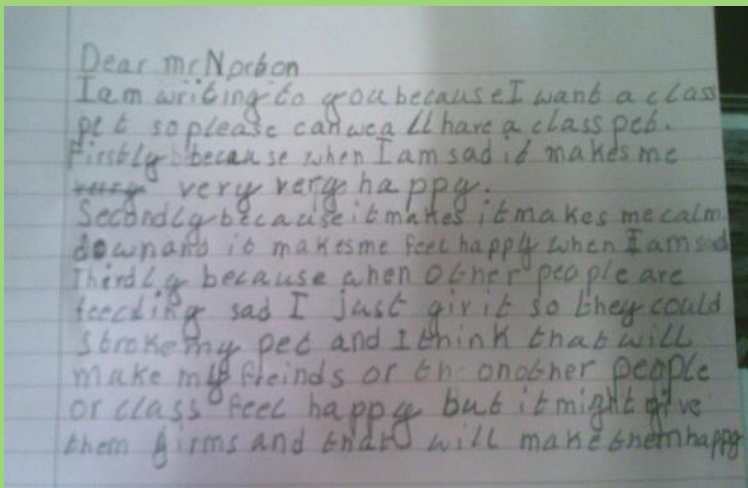 Dear mr Norbon
I am writing to you because I want a class
pet so please can we all have a class pet.
Firstly because when I am sad it makes me
very very happy.
Secondly because it makes it makes me calm
down and it makes me feel happy when I am sad
Thirdly because when other people are
feeling sad I just giv it so they could
stroke my pet and I think that will
make my freinds or the onother people
or class feel happy but it might give
them girms and that will make them happy